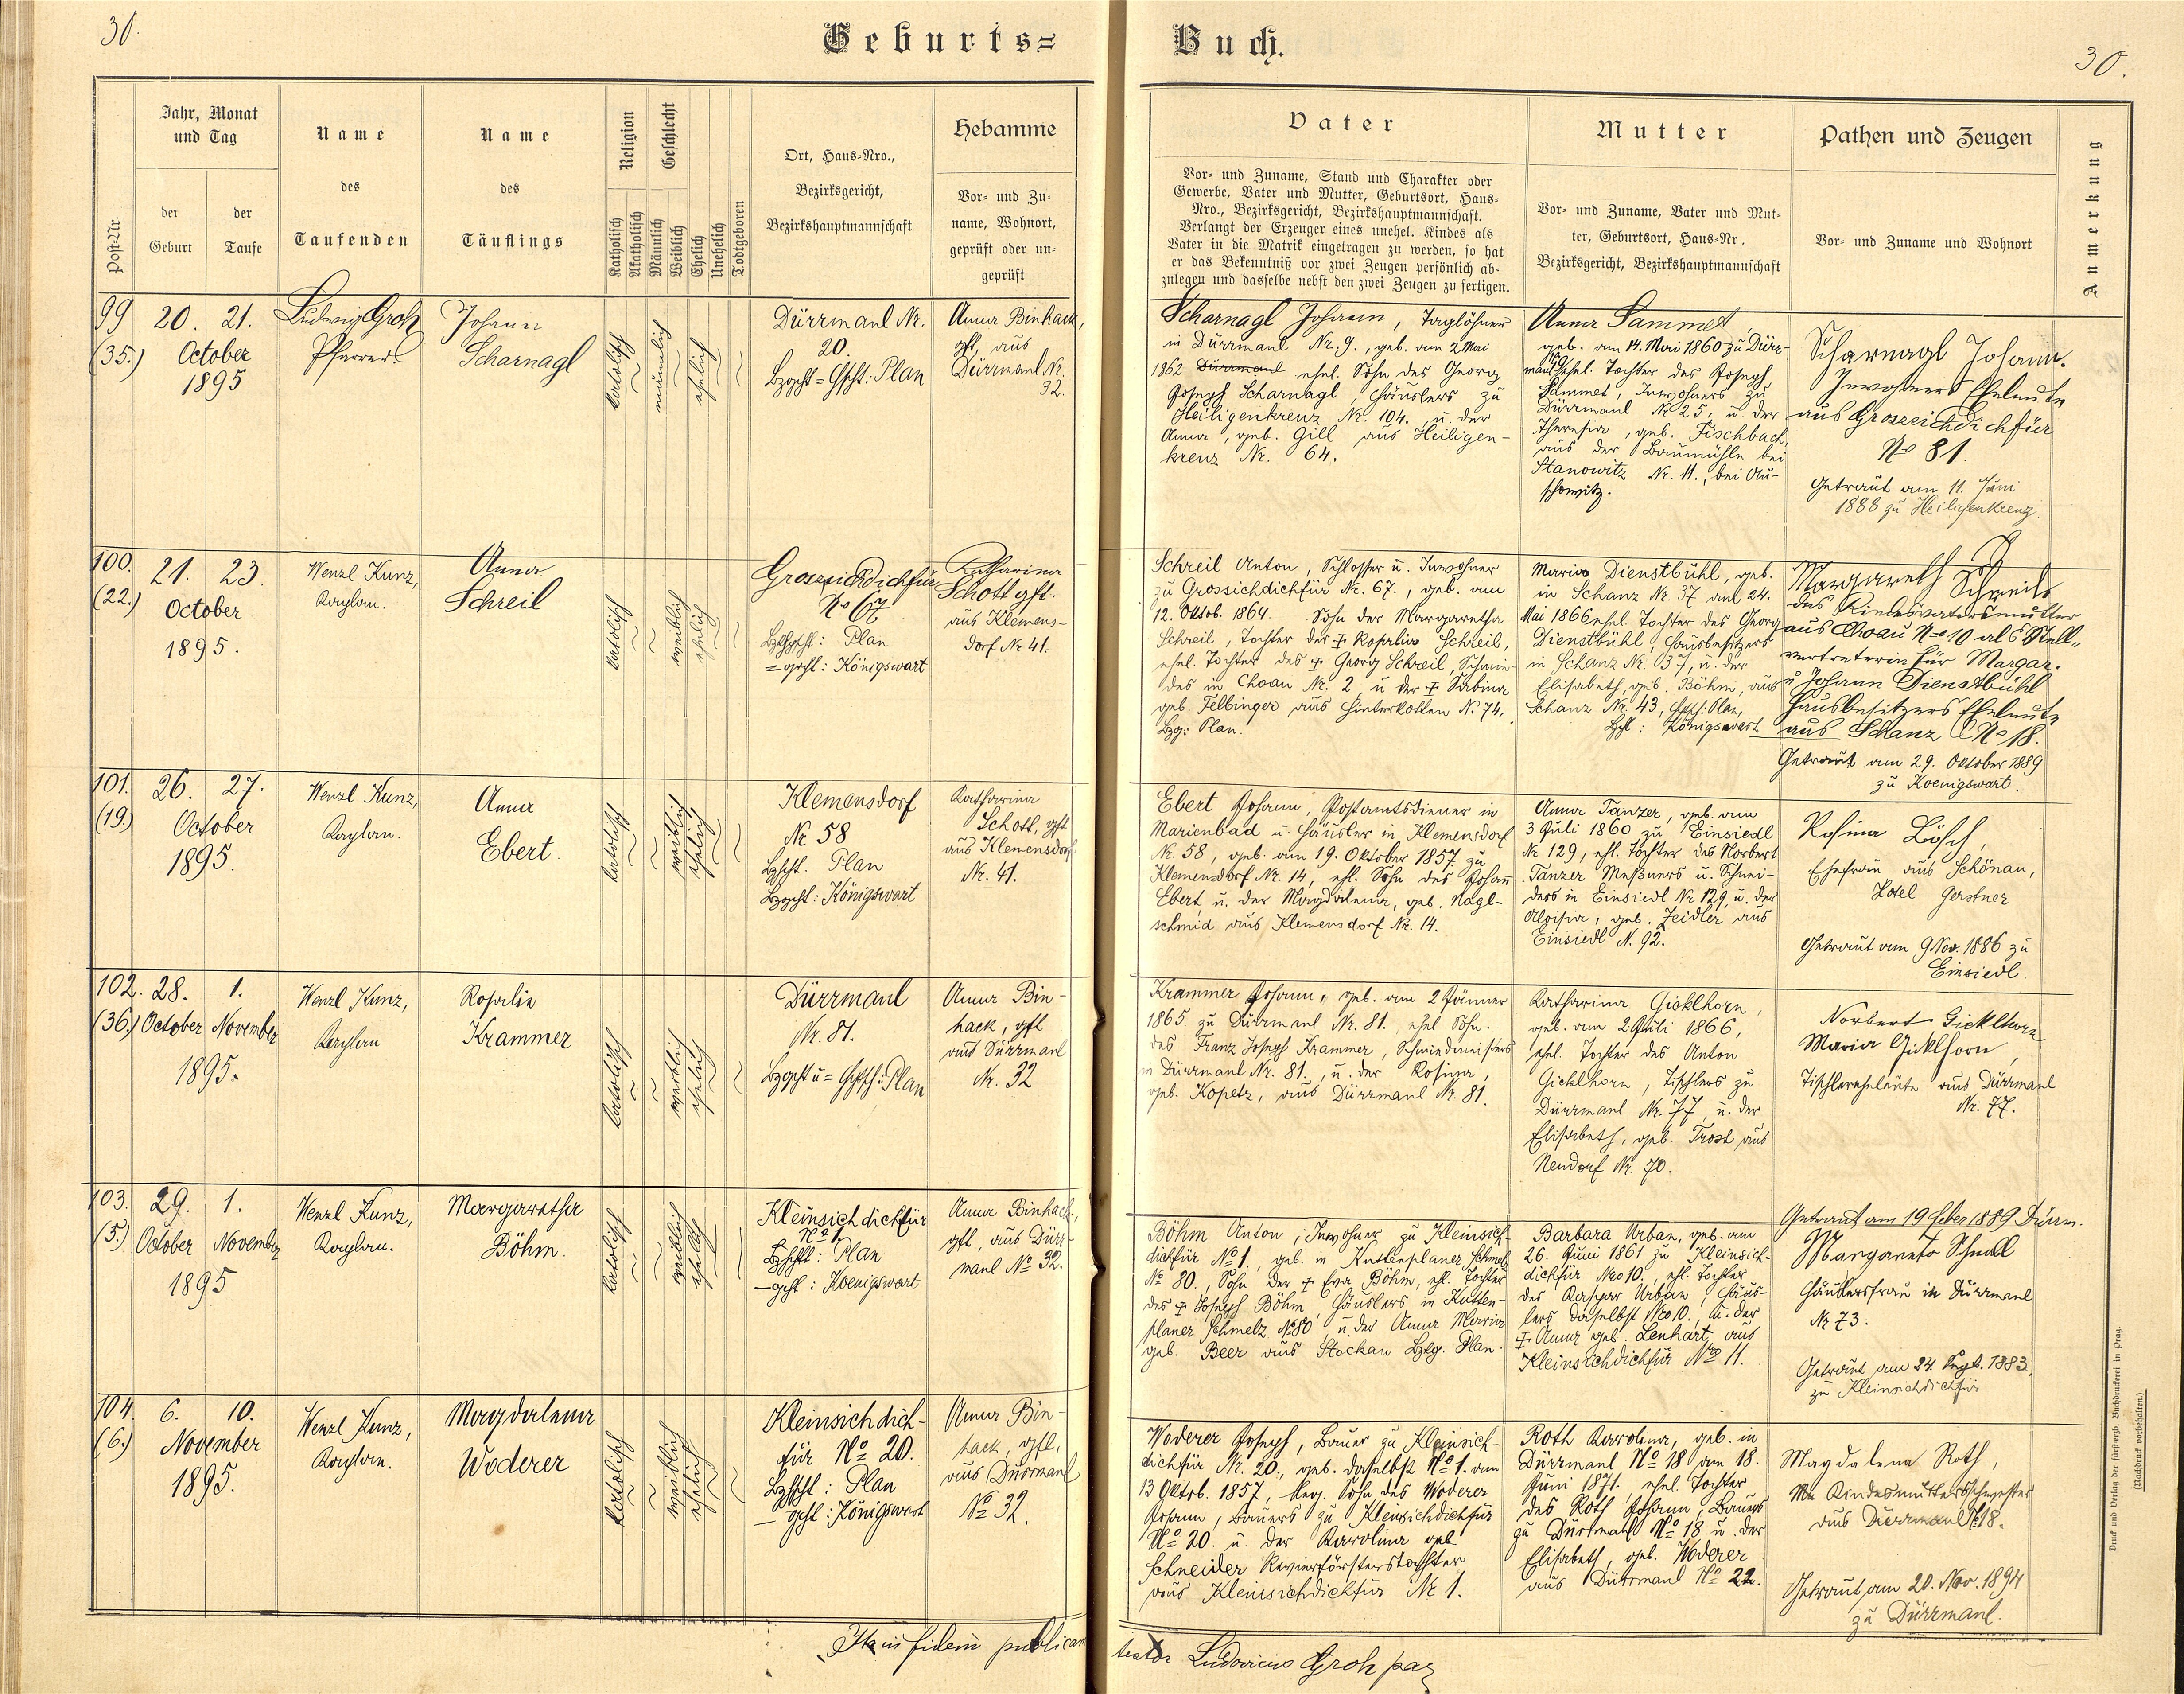 30.
Geburts=
Buch.
30.
Post-Nr.
Jahr, Monat
und Tag
der
Geburt
der
Taufe
Name
des
Taufenden
Name
des
Täuflings
Religion
Katholisch
Akatholisch
Geschlecht
Männlich
Weiblich
Ehelich
Unehelich
Todtgeboren
Ort, Haus-Nro.,
Bezirksgericht,
Bezirkshauptmannschaft
Hebamme
Vor- und Zu-
name, Wohnort,
geprüft oder un-
geprüft
Vater
Vor- und Zuname, Stand und Charakter oder
Gewerbe, Vater und Mutter, Geburtsort, Haus-
Nro., Bezirksgericht, Bezirkshauptmannschaft.
Verlangt der Erzeuger eines unehel. Kindes als
Vater in die Matrik eingetragen zu werden, so hat
er das Bekenntniß vor zwei Zeugen persönlich ab-
zulegen und dasselbe nebst den zwei Zeugen zu fertigen.
Mutter
Vor- und Zuname, Vater und Mut-
ter, Geburtsort, Haus-Nr.,
Bezirksgericht, Bezirkshauptmannschaft
Pathen und Zeugen
Vor- und Zuname und Wohnort
Anmerkung
99
(35.)
20. 21.
October
1895
Ludwig Groh
Pfarrer
Johann
Scharnagl
katholisch
männlich
ehelich
Dürrmaul Nr.
20.
Bzgcht = Hptsch: Plan
Anna Binhack,
gft, aus
Dürrmaul Nr.
32.
Scharnagl Johann, Taglöhner
in Dürrmaul Nr. 9., geb. am 2 Mai
1862 Dürrmaul ehel. Sohn des Georg
Joseph Scharnagl, Häuslers zu
Heiligenkreuz Nr. 104. u. der
Anna, geb. Gill aus Heiligen-
kreuz Nr. 64.
Anna Sammet,
geb. am 14. Mai 1860 zu Dürr-
maul ehel. Tochter des Joseph
Sammet, Inwohners zu
Dürrmaul Nr. 25, u. der
Theresia, geb. Fischbach,
aus der Baumühle bei
Stanowitz Nr. 11., bei Au-
schowitz.
Scharnagl Johann.
Inwohners Eheleute
aus Groszsichdichfür
No 81.
Getraut am 11. Juni
1888 zu Heiligenkreuz.
100.
(22.)
21. 23.
October
1895.
Wenzl Kunz,
Kaplan.
Anna
Schreil
katholisch
weiblich
ehelich
Groszsichdichfür
No 67
Bzhptsch: Plan
= gcht: Königswart
Katharina
Schott gft.
aus Klemens-
dorf Nr 41.
Schreil Anton, Schlosser u. Inwohner
zu Grossichdichfür Nr. 67., geb. am
12. Oktob. 1864. Sohn der Margaretha
Schreil, Tochter der + Rosalia Schreil,
ehel. Tochter des + Georg Schreil, Schmie-
des in Choau Nr. 2 u der + Sabina
geb. Felbinger aus Hinterkotten N. 74,
Bzg: Plan.
Maria Dienstbühl, geb.
in Schanz Nr. 37 am 24.
Mai 1866 ehel. Tochter des Georg
Dienstbühl, Hausbesitzers
in Schanz Nr. 37, u. der
Elisabeth, geb. Böhm, aus
Schanz Nr. 43, Hptsch: Plan,
Bzgt: Königswart
Margareth Schreil,
des Kindesvatersmutter
aus Choau No 10 als Stell-
vertreterin für Margar.
u Johann Dienstbühl
Hausbesitzers Eheleute
aus Schanz No 18.
Getraut am 29. Oktober 1889
zu Koenigswart.
101.
(19.)
26. 27.
October
1895.
Wenzl Kunz,
Kaplan.
Anna
Ebert.
katholisch
weiblich
ehelich
Klemensdorf
Nr 58
Bzhptsch: Plan
Bzgcht: Königswart
Katharina
Schott, gft
aus Klemensdorf
Nr. 41.
Ebert Johann, Postamtsdiener in
Marienbad u. Häusler in Klemensdorf
Nr. 58, geb. am 19. Oktober 1857 zu
Klemensdorf Nr. 14, ehl. Sohn des Johann
Ebert u. der Magdalena, geb. Nagl-
schmid aus Klemensdorf Nr. 14.
Anna Tanzer, geb. am
3 Juli 1860 zu Einsiedl
Nr 129, ehl. Tochter des Norbert
Tanzer Meßners u. Schnei-
ders in Einsiedl Nr 129, u. der
Aloisia, geb. Zeidler aus
Einsiedl N. 92.
Rosina Lösch,
Ehefrau aus Schönau,
Hotel Gerstner
Getraut am 9 Nov. 1886 zu
Einsiedl
102.
(36.)
28. 1.
October November
1895.
Wenzl Kunz,
Kaplan
Rosalia
Krammer
katholisch
weiblich
ehelich
Dürrmaul
Nr. 81.
Bzgcht u = Hptsch: Plan
Anna Bin-
hack, gft
aus Dürrmaul
Nr. 32
Krammer Johann, geb. am 2 Jänner
1865 zu Dürrmaul Nr. 81. ehel Sohn.
des Franz Joseph Krammer, Schmiedmeisters
in Dürrmaul Nr. 81., u. der Rosina,
geb. Kopetz, aus Dürrmaul Nr. 81.
Katharina Gicklhorn,
geb. am 2 Juli 1866,
ehel. Tochter des Anton
Gicklhorn, Tischlers zu
Dürrmaul Nr. 77, u. der
Elisabeth, geb. Trost aus
Neudorf Nr. 70.
Norbert Gicklhorn
Maria Gicklhorn,
Tischlereheleute aus Dürrmaul
Nr. 77.
Getraut am 19 Feber 1889 Dürrm.
103.
(5.)
29. 1.
October November
1895
Wenzl Kunz,
Kaplan.
Margaretha
Böhm.
katholisch
weiblich
ehelich
Kleinsichdichfür
No 1
Bzhptsch: Plan
— gcht: Koenigswart
Anna Binhack,
gft, aus Dürr-
maul No 32.
Böhm Anton, Inwohner zu Kleinsich-
dichfür No 1., geb. in Kuttenplaner Schmelz
No 80., Sohn der + Eva Böhm, ehl. Tochter
des + Joseph Böhm, Häuslers in Kutten-
planer Schmelz No 80 u. der Anna Maria
geb. Beer aus Stockau Bzg. Plan.
Barbara Urban, geb. am
26. Juni 1861 zu Kleinsich-
dichfür Nro 10., ehl. Tochter
des Kaspar Urban, Häus-
lers daselbst Nro 10., u. der
+ Anna geb. Lenhart aus
Kleinsichdichfür Nro 11.
Margareta Schnall
Häuslersfrau in Dürrmaul
Nr 73.
Getraut am 24. Sept. 1883.
zu Kleinsichdichfür
104.
(6.)
6. 10.
November
1895.
Wenzl Kunz,
Kaplan.
Magdalena
Woderer
katholisch
weiblich
ehelich
Kleinsichdich-
für No 20.
Bzhptsch: Plan
— gcht: Königswart
Anna Bin-
hack, gft,
aus Dürrmaul
No 32.
Woderer Joseph, Bauer zu Kleinsich-
dichfür Nr. 20., geb. daselbst No 1. am
13 Oktob. 1857, leg. Sohn des Woderer
Johann, Bauers zu Kleinsichdichfür
No 20. u. der Karolina geb.
Schneider Revierförsterstochter
aus Kleinsichdichfür Nr 1.
Roth Karolina, geb. in
Dürrmaul No 18 am 18.
Juni 1871, ehel. Tochter
des Roth Johann, Bauers
zu Dürrmaul No 18 u. der
Elisabeth, geb. Woderer
aus Dürrmaul No 22.
Magdalena Roth,
Kindesmuttersschwester
aus Dürrmaul 18.
Getraut am 20. Nov. 1894
zu Dürrmaul.
Ita in fidem publicam
testor Ludovicus Groh par
Druck und Verlag der fürsterzb. Buchdruckerei in Prag.
(Nachdruck vorbehalten.)